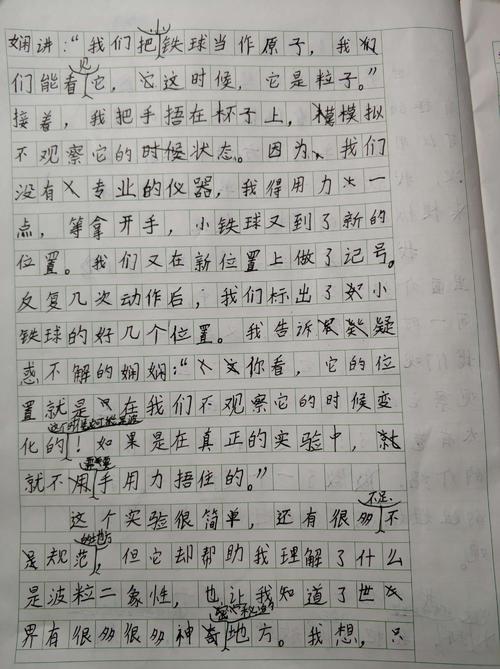 娴讲：“我们把小铁球当作原子，我们
们能看见它，它这时候，它是粒子。”
接着，我把手捂在杯子上，模模拟
不观察它的时候状态。因为，我们
没有专业的仪器，我得用力一
点，等拿开手，小铁球又到了新的
位置。我们又在新位置上做了记号。
反复几次动作后，我们标出了小
铁球的好几个位置。我告诉疑
惑不解的娴娴：“你看，它的位
置就是在我们不观察它的时候变
化的！如果是在真正的实验中，就
就不需要用手用力捂住的。”
这个实验很简单，还有很多不足
不是规范的地方，但它却帮助我理解了什么
是波粒二象性，也让我知道了世
界有很多很多神奇地方。我想，只